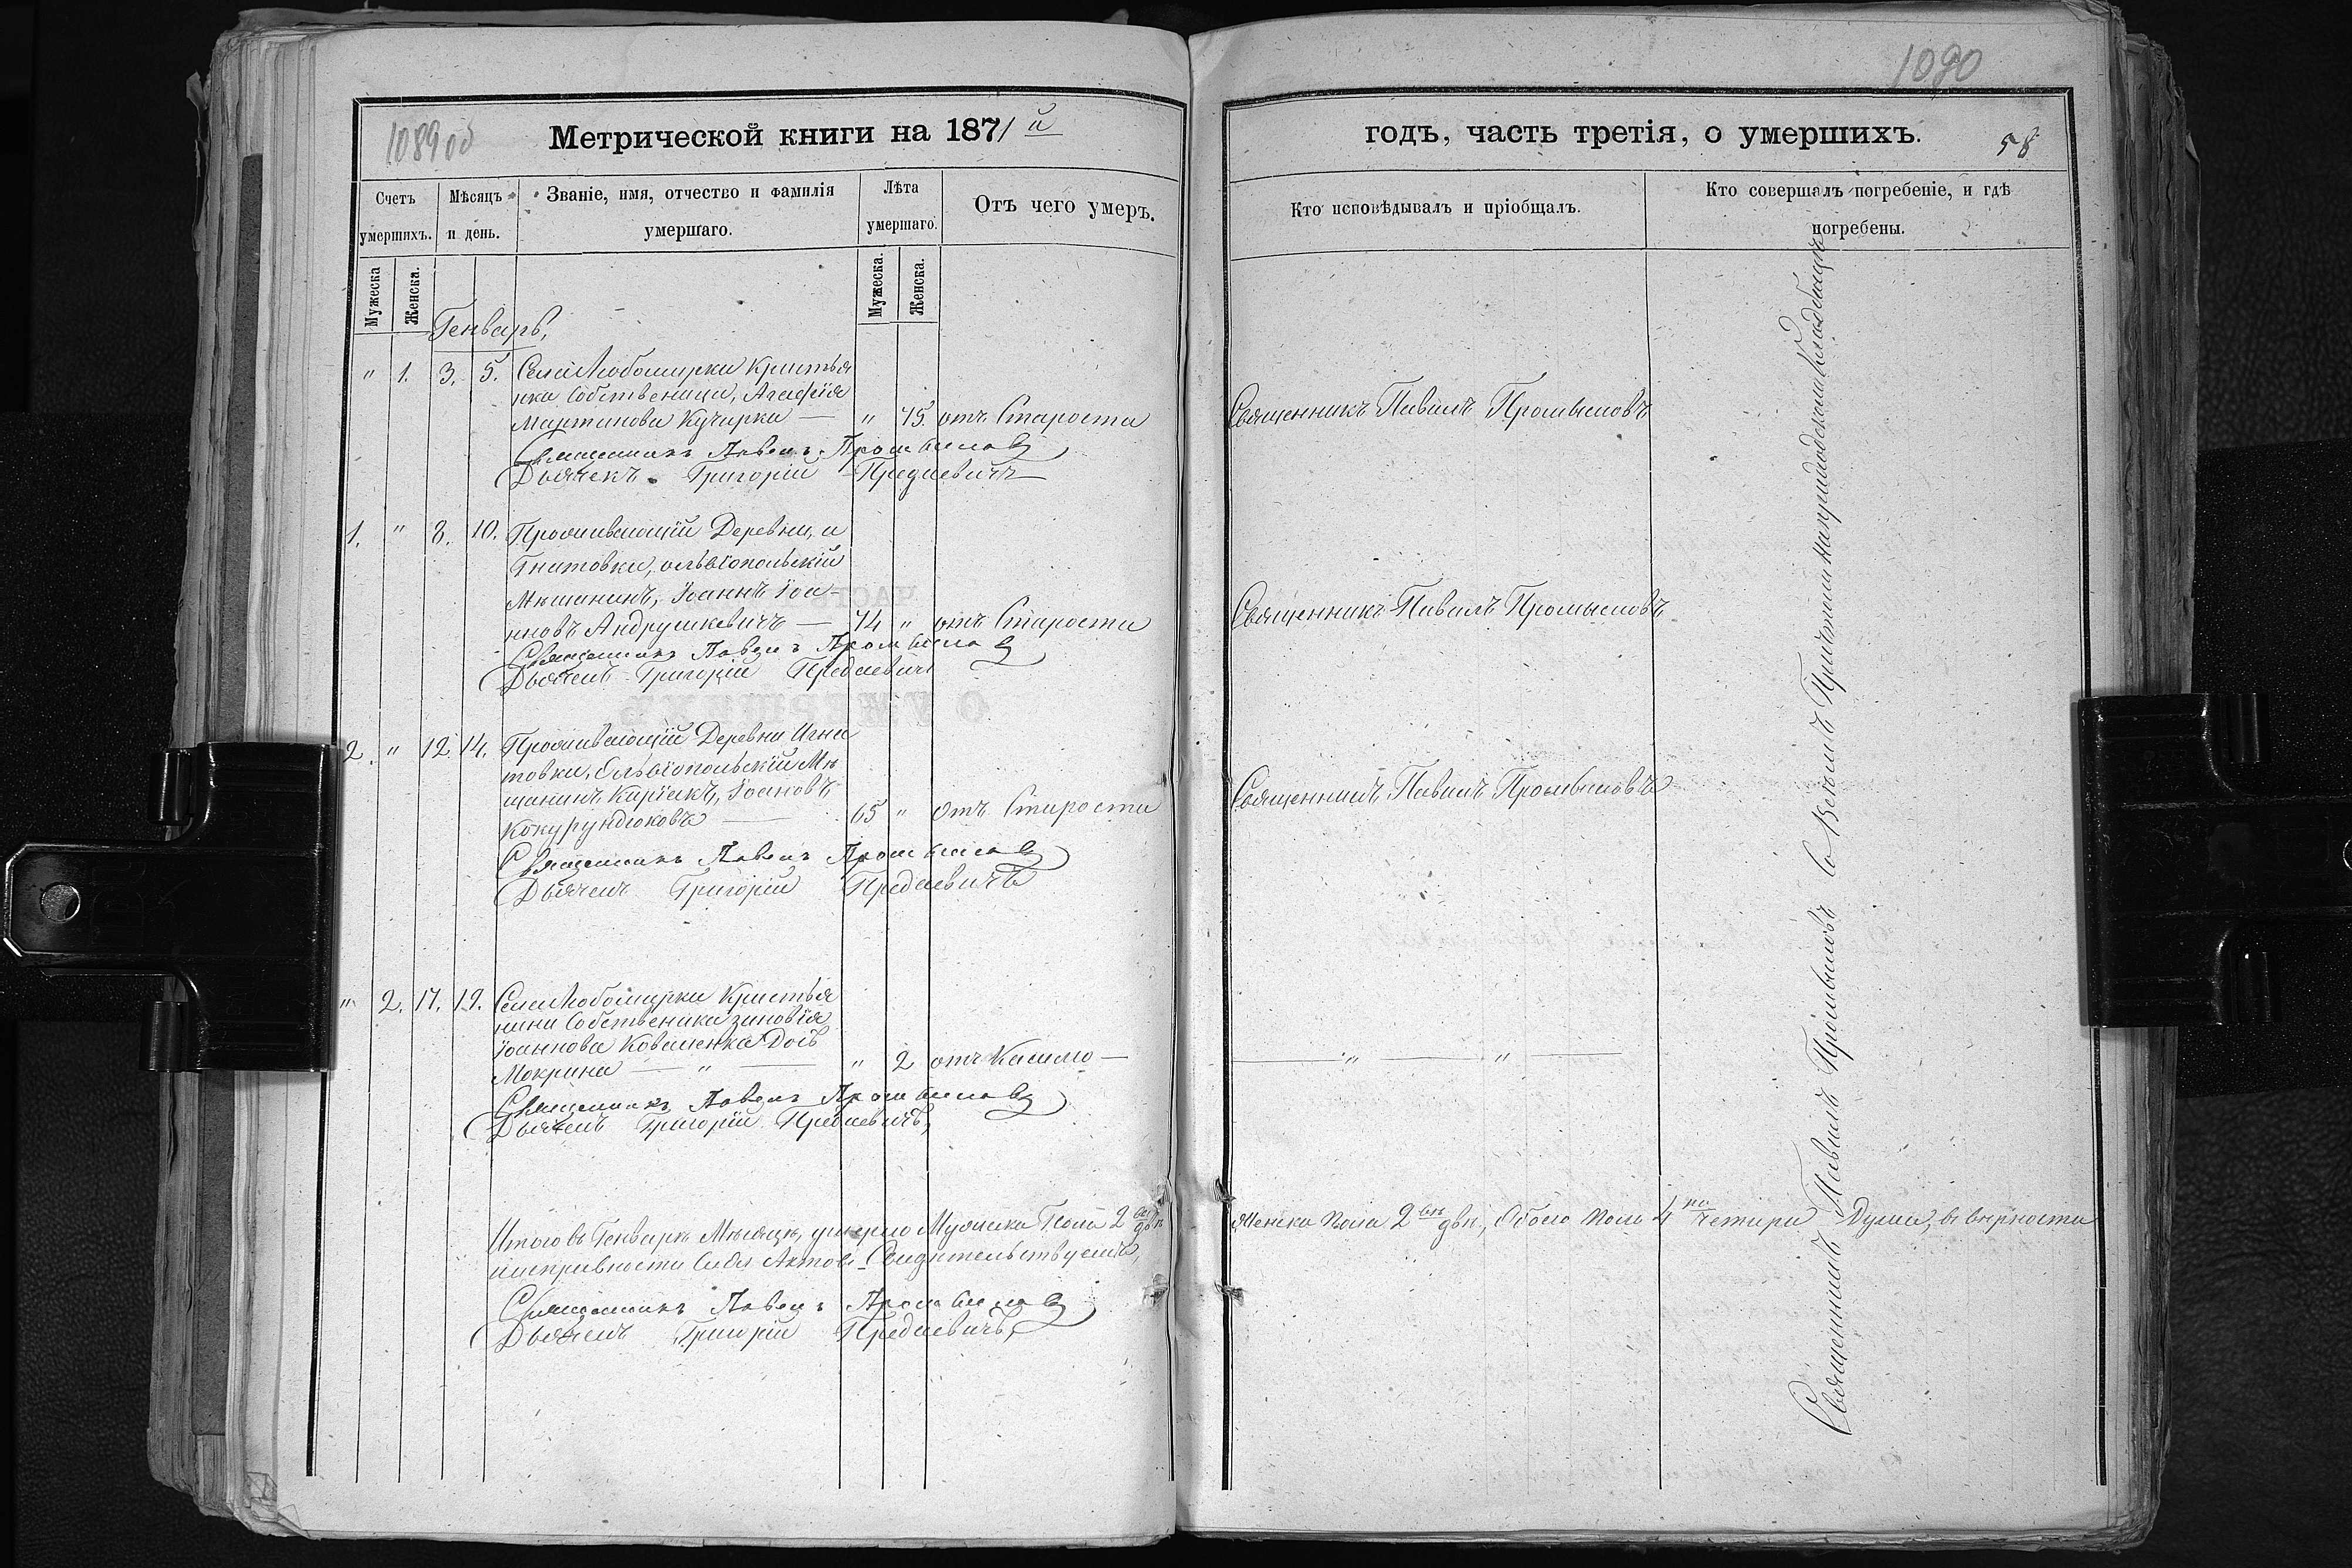 1089об
1090
Метрической книги на 1871й
годъ, часть третія, о умершихъ.
58
Счетъ умершихъ.
Мѣсяцъ и день.
Званіе, имя, отчество и фамилія умершаго.
Лѣта умершаго.
Отъ чего умеръ.
Кто исповѣдывалъ и пріобщалъ.
Кто совершалъ погребеніе, и гдѣ погребены.
Мужеска
Женска.
Мужеска.
Женска.
Генварь,
" 1. 3. 5. Села Любомирки Кристья
нка Собственица, Агафія
Мартинова Кучирка — " 75. отъ Старости
Священникъ Павелъ Промысловъ
Священникъ Павелъ Промысловъ
Дьячекъ Григорій Предаевичъ
1. " 8. 10. Проживающій Деревни, и
Гнатовки, ольвіопольскій
Мѣшанинъ, Іоаннъ Іоа-
нновъ Андрушкевичъ — 74 " отъ Старости
Священникъ Павелъ Промысловъ
Священникъ Павелъ Промысловъ
Дьячекъ Григорій Предаевичъ
2. " 12. 14. Проживающій Деревни Игна
товки, Ольвіопольскій Мѣ
щанинъ Іоановъ
65 " отъ Старости
Священникъ Павелъ Промысловъ
Священникъ Павелъ Промысловъ
Дьячекъ Григорій Предаевичъ
" 2. 17. 19. Села Любомирки Кристья
нина Собственика Зиновія
Іоаннова Коваленка Дочь
Мокрина — " — " 2 отъ Кашлю —
— " — " —
Священникъ Павелъ Промысловъ
Дьячекъ Григорій Предаевичъ,
Итого въ Генварѣ Мѣсяцѣ, умерло Мужеска Пола 2 два
Женска Пола 2 двѣ, Обоего Пола 4 четыри Души, въ вѣрности
исправности Сихъ Актовъ Свидѣтельствуемъ,
Священникъ Павелъ Промысловъ
Дьячекъ Григорій Предаевичъ,
Священникъ Павелъ Промысловъ Со Всемъ Причтомъ на приходскомъ Кладбищѣ